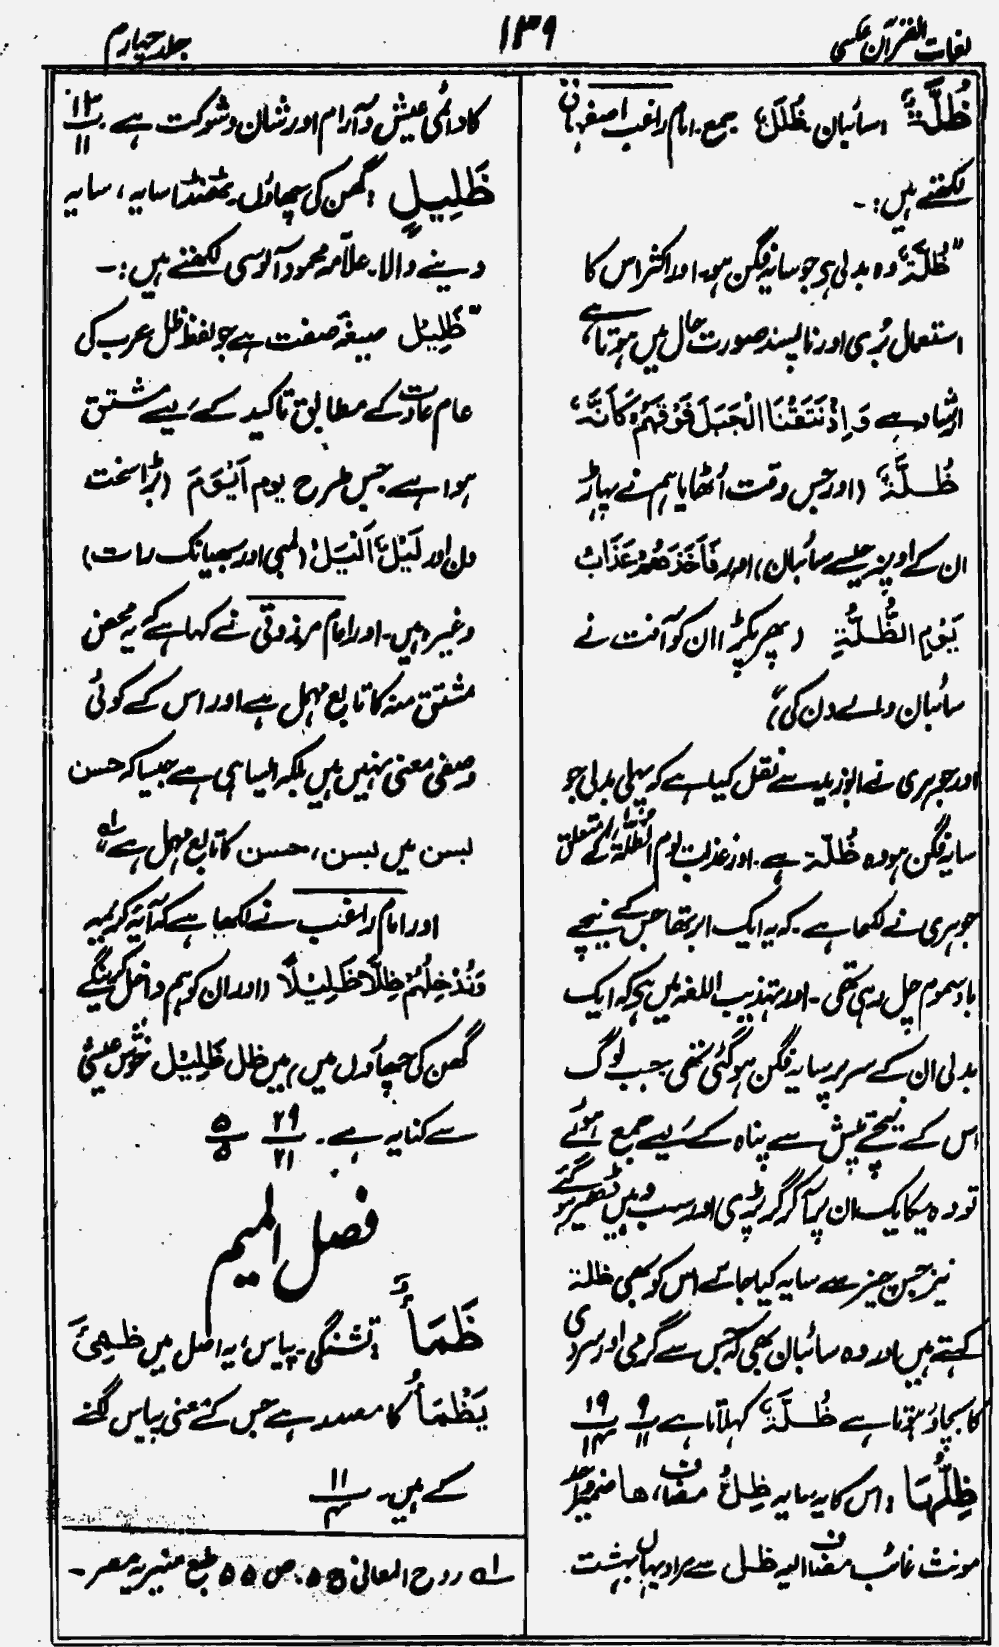 لغات القرآن عکسی
۱۳۹
جلد چہارم
ظُلَّۃٌ : سائبان ظُلَلٌ جمع۔ امام راغب اصفہانی
لکھتے ہیں :۔
”ظُلَّۃٌ وہ بدلی ہی جو سایہ فگن ہو۔ اور اکثر اس کا
استعمال بُری اور ناپسند صورت حال میں ہوتا ہے
ارشاد ہے وَاِذْ نَتَقْنَا الْجَبَلَ فَوْقَہُمْ کَاَنَّہٗ
ظُلَّۃٌ (اور جس وقت اُٹھایا ہم نے پہاڑ
ان کے اوپر جیسے سائبان) اور فَاَخَذَھُمْ عَذَابُ
یَوْمِ الظُّلَّۃِ (پھر پکڑا ان کو آفت نے
سائبان والے دن کی)“
اور جوہری نے ابوزید سے نقل کیا ہے کہ پہلی بدلی جو
سایہ فگن ہو وہ ظُلّۃ ہے۔ اور عذاب یوم الظلۃ کے متعلق
جوہری نے لکھا ہے۔ کہ یہ ایک ابر تھا جس کے نیچے
باد سموم چل رہی تھی۔ اور تہذیب اللغۃ میں ہی کہ ایک
بدلی ان کے سر پر سایہ فگن ہوگئی تھی جب لوگ
اس کے نیچے تپش سے پناہ کے لیے جمع ہوئے
تو وہ یکایک ان پر آکر گر پڑی اور سب وہیں ڈھیر ہو گئے
نیز جس چیز سے سایہ کیا جائے اس کو بھی ظلۃ
کہتے ہیں اور وہ سائبان بھی کہ جس سے گرمی اور سردی
کا بچاؤ ہوتا ہے ظُلَّۃٌ کہلاتا ہے ۹/۱۱ ۱۹/۱۴
ظِلُّہَا : اس کا یہ سایہ ظِلُّ مضاف، ھا ضمیر واحد
مونث غائب مضاف الیہ ظل سے مراد یہاں بہشت
کا دائمی عیش و آرام اور شان و شوکت ہے ۱۳/۱۱
ظَلِیلٍ : گھن کی چھاؤں۔ ٹھنڈا سایہ، سایہ
دینے والا۔ علامہ محمود آلوسی لکھتے ہیں :۔
”ظَلِیْل صیغہ صفت ہے جو لفظ ظل عرب کی
عام عادت کے مطابق تاکید کے لیے مشتق
ہوا ہے جس طرح یوم اَیْوَمَ (بڑا سخت
دن اور لَیْلٌ اَلْیَلُ (لمبی اور بھیانک رات)
وغیرہ ہیں۔ اور امام مرزوقی نے کہا ہے کہ یہ محض
مشتق منہ کا تابع مہمل ہے اور اس کے کوئی
وصفی معنی نہیں ہیں بلکہ ایسا ہی ہے جیسا کہ حسن
بسن میں بسن، حسن کا تابع مہمل ہے“ ؎۱
اور امام راغب نے لکھا ہے کہ آیۃ کریمہ
وَنُدْخِلُہُمْ ظِلًّا ظَلِیْلًا (اور ان کو ہم داخل کرینگے
گھن کی چھاؤں میں) میں ظل ظَلِیْل خوش عیشی
سے کنایہ ہے۔ ۲۹/۲۱ ۵/۵
فصل المیم
ظَمَأٌ : تشنگی۔ پیاس، یہ اصل میں ظَمِئَ
یَظْمَأُ کا مصدر ہے جس کے معنی پیاس لگنے
کے ہیں۔ ۱۱/۴
؎۱ روح المعانی ج ۵ ص ۵۵ طبع منیریہ مصر۔